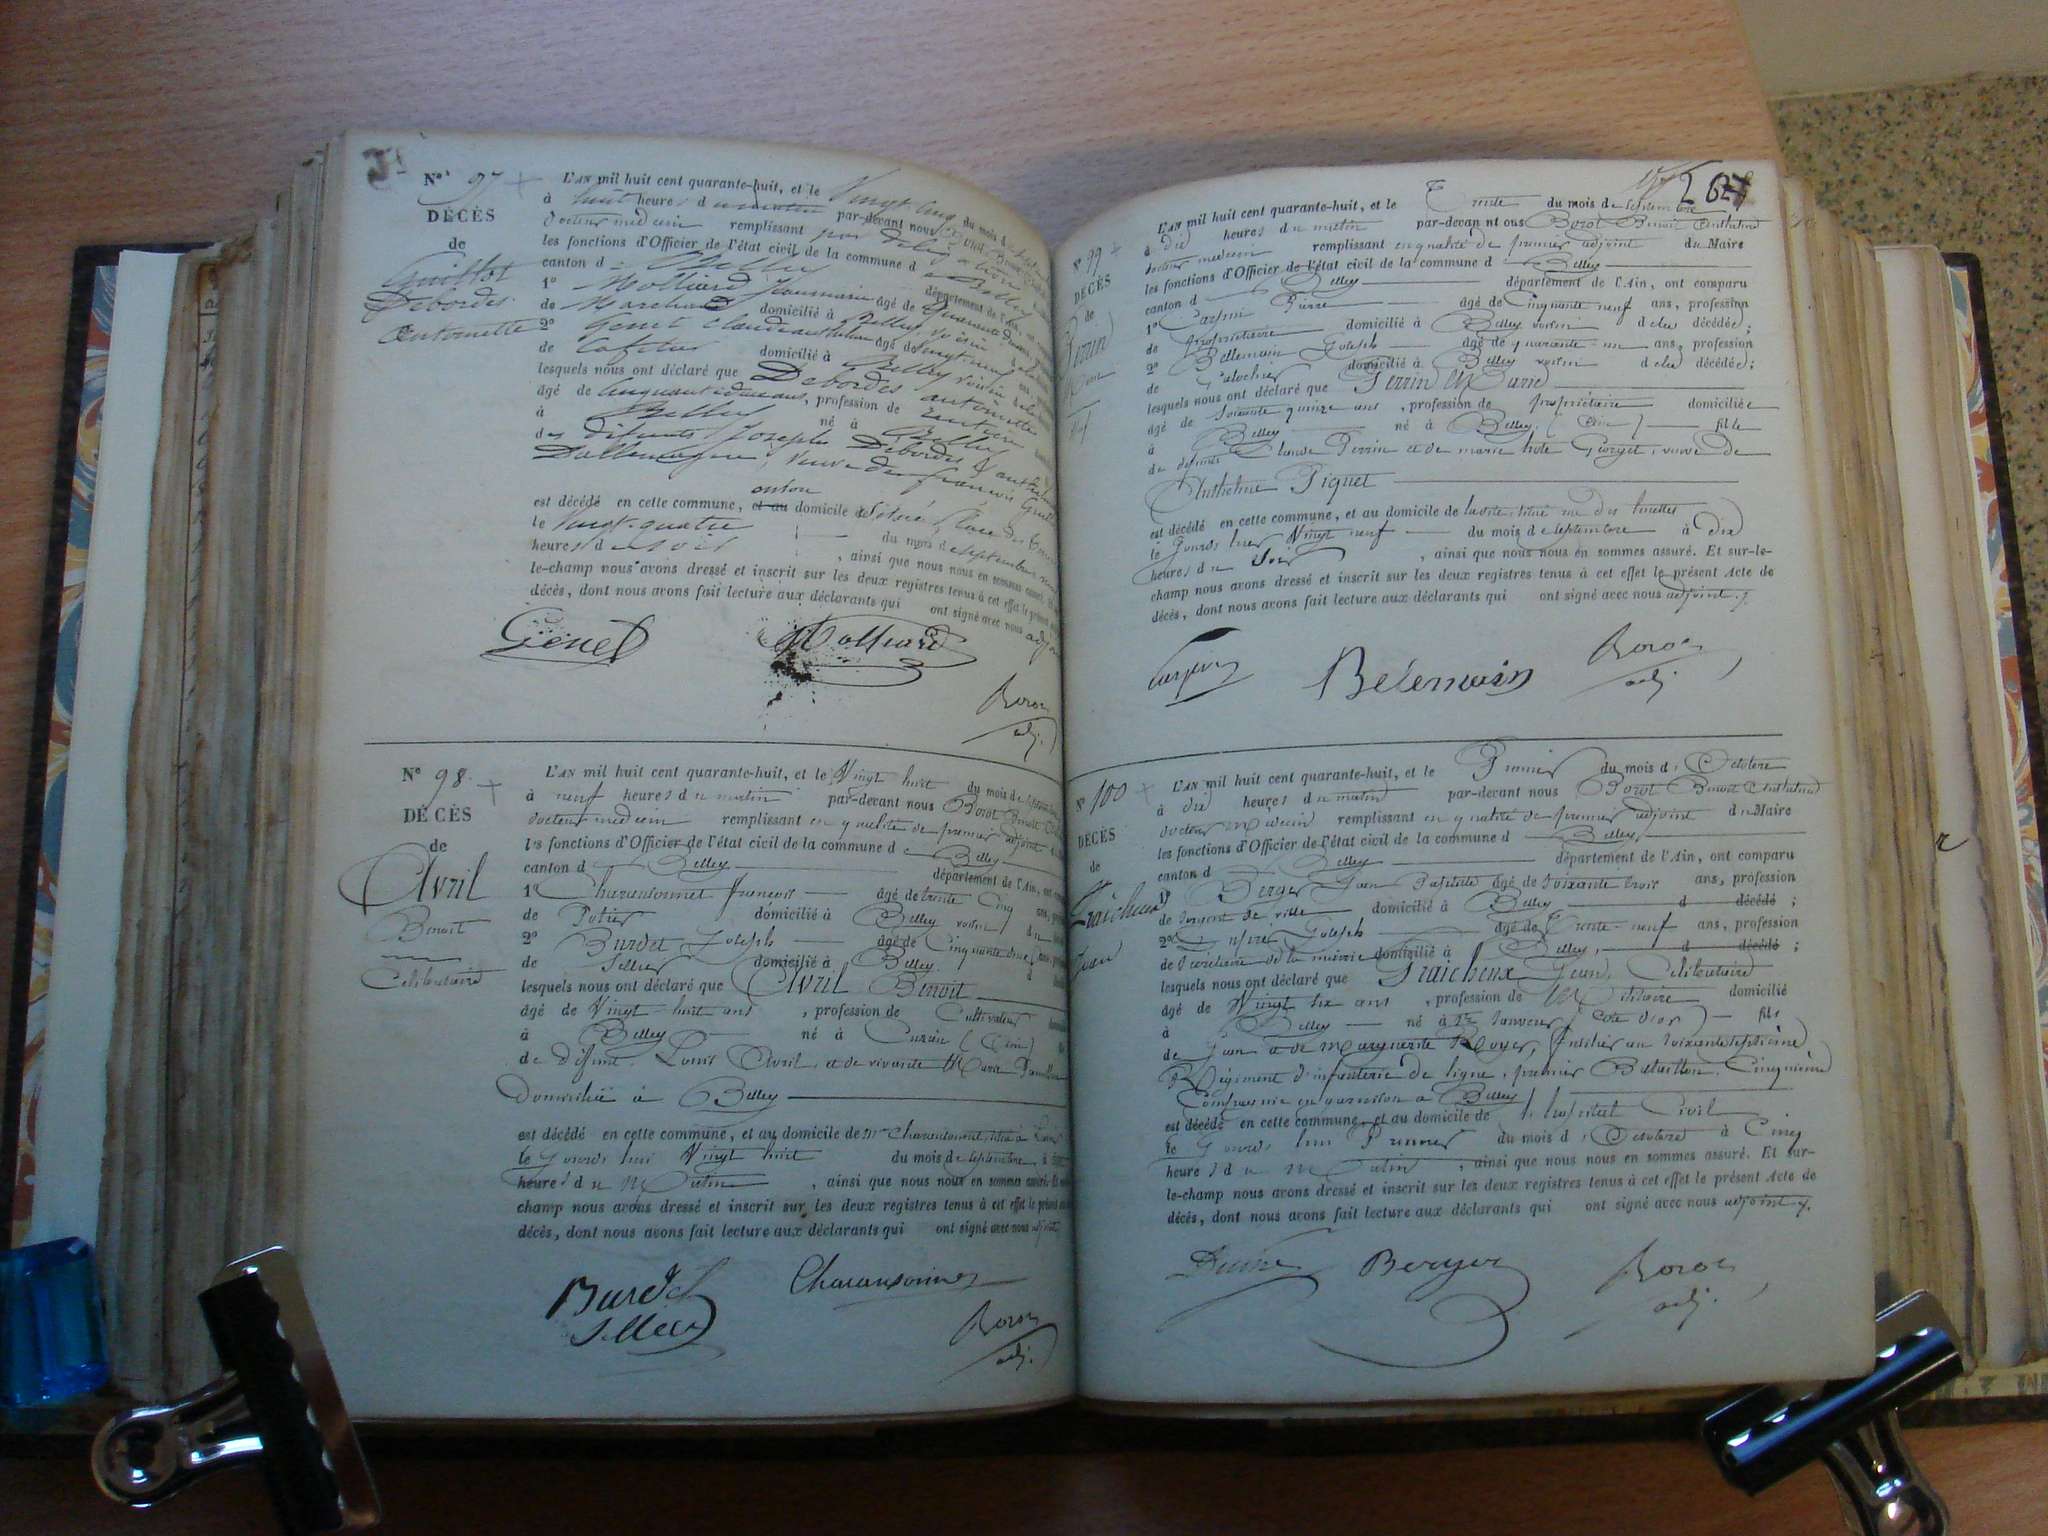 N° 97
DÉCÈS
de
Guillot
Debordes
Antoinette
L'AN mil huit cent quarante-huit, et le Vingt cinq du mois de
à huit heures du matin par-devant nous
docteur medecin remplissant par
les fonctions d'Officier de l'état civil de la commune de Belley
canton de Belley département de l'Ain, ont
1° Molliard âgé de quarante
de Marchand domicilié à Belley voisin
2° Genet Claude âgé de vingt neuf ans,
de Cafetier domicilié à Belley voisin
lesquels nous ont déclaré que Debordes antoinette
âgé de Cinquante deux ans, profession de rentière
à Belley né à Belley
des défunts Joseph Debordes &
Dallemagne, veuve de françois
est décédé en cette commune, et au domicile
le Vingt-quatre du mois de septembre
heures du soir, ainsi que nous nous en sommes assuré. Et
le-champ nous avons dressé et inscrit sur les deux registres tenus à cet effet le présent
décès, dont nous avons fait lecture aux déclarants qui ont signé avec nous
Genet Molliard
Borot
adj.
N° 98
DÉCÈS
de
Avril
Benoit
Célibataire
L'AN mil huit cent quarante-huit, et le Vingt huit du mois de septembre
à neuf heures du matin par-devant nous Borot Benoit
docteur medecin remplissant en qualité de premier adjoint
les fonctions d'Officier de l'état civil de la commune de Belley
canton d Belley département de l'Ain, ont
1° Charansonnet françois âgé de trente Cinq ans,
de Potier domicilié à Belley voisin du
2° Burdet Joseph âgé de Cinquante
de Sellier domicilié à Belley
lesquels nous ont déclaré que Avril Benoit
âgé de Vingt-huit ans, profession de Cultivateur
à Belley né à Cuzieu (Ain)
de défunt Louis Avril, et de vivante Marie
Domiciliée à Belley
est décédé en cette commune, et au domicile de Mr Charansonnet
le Jourd'hui Vingt huit du mois de septembre à
heures du Matin, ainsi que nous nous en sommes assuré. Et
champ nous avons dressé et inscrit sur les deux registres tenus à cet effet le présent
décès, dont nous avons fait lecture aux déclarants qui ont signé avec nous adjoint
Burdet Charansonnet
Sellier
Borot
adj.
267
N° 99
DÉCÈS
de
Perrin
L'AN mil huit cent quarante-huit, et le Trente du mois de septembre
à dix heures du matin par-devant nous Borot Benoit Anthelme
docteur medecin remplissant en qualité de premier adjoint du Maire
les fonctions d'Officier de l'état civil de la commune d Belley
canton d Belley département de l'Ain, ont comparu
1° Pierre âgé de Cinquante neuf ans, profession
de propriétaire domicilié à Belley voisin de la décédée;
2° Bellemain Joseph âgé de quarante-un ans, profession
de Galocher domicilié à Belley voisin de la décédée;
lesquels nous ont déclaré que Perrin Marie
âgé de soixante quinze ans, profession de propriétaire domiciliée
à Belley né à Belley (Ain) fille
de défunts Claude Perrin et de marie Georget, veuve de
Anthelme Piquet
est décédé en cette commune, et au domicile de
le Jourd'hier Vingt neuf du mois de septembre à dix
heures du Soir, ainsi que nous nous en sommes assuré. Et sur-le-
champ nous avons dressé et inscrit sur les deux registres tenus à cet effet le présent Acte de
décès, dont nous avons fait lecture aux déclarants qui ont signé avec nous adjoint
Belemain
Borot
adj.
N° 100
DÉCÈS
de
Fraicheux
Jean
L'AN mil huit cent quarante-huit, et le Premier du mois d'Octobre
à dix heures du matin par-devant nous Borot Benoit Anthelme
docteur Medecin remplissant en qualité de premier adjoint du Maire
les fonctions d'Officier de l'état civil de la commune d Belley
canton d Belley département de l'Ain, ont comparu
1° Berger Jean Baptiste âgé de soixante trois ans, profession
de Sergent de ville domicilié à Belley d décédé;
2° Joseph âgé de Trente-neuf ans, profession
de Secrétaire de la mairie domicilié à Belley d décédé;
lesquels nous ont déclaré que Fraicheux Jean Célibataire
âgé de Vingt six ans, profession de Militaire domicilié
à Belley né à (Cote d'or) fils
de Jean et de Marguerite Royer, fusilier au soixante septième
Régiment d'infanterie de ligne, premier Bataillon, Cinquième
Compagnie en garnison à Belley
est décédé en cette commune, et au domicile de l'hopital Civil
le Jourd'hui Premier du mois d'Octobre à Cinq
heures du Matin, ainsi que nous nous en sommes assuré. Et sur-
le-champ nous avons dressé et inscrit sur les deux registres tenus à cet effet le présent Acte de
décès, dont nous avons fait lecture aux déclarants qui ont signé avec nous adjoint
Berger
Borot
adj.